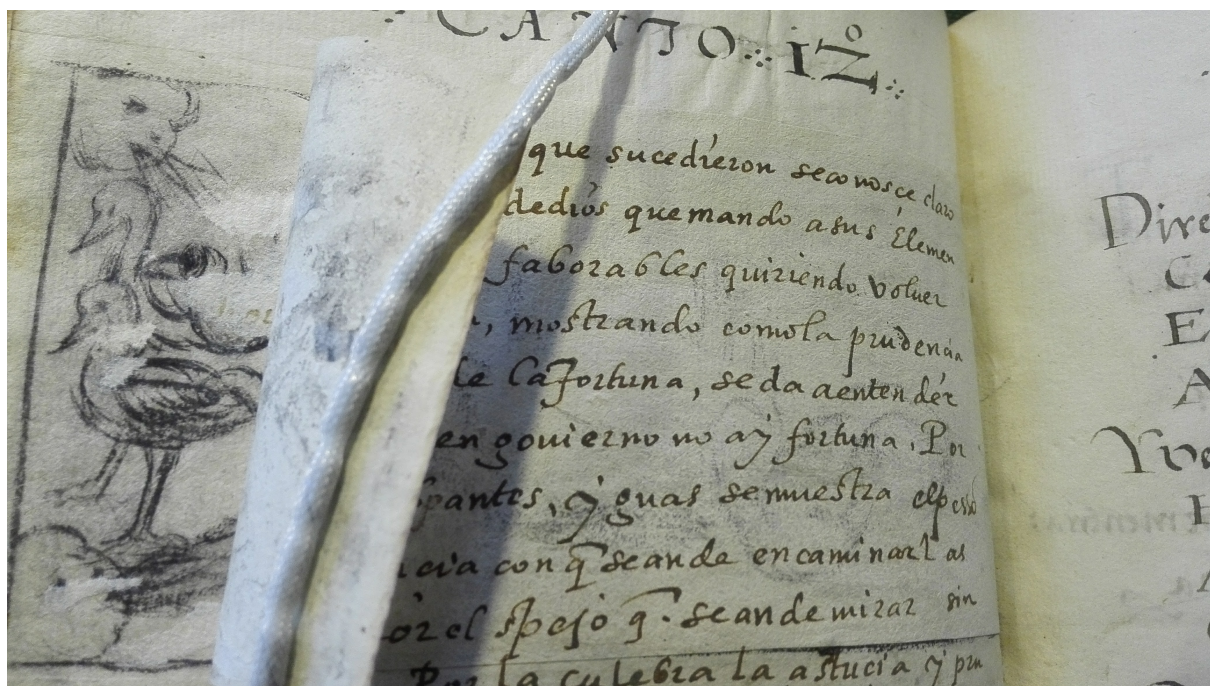 CANTO 12º
que sucedieron seconosce claro
dediós quemando asus Elemen
faborables quiriendo volver
, mostrando comola prudencia
de Lafortuna, seda aentendér
en govierno no aÿ fortuna. Por
pantes, ÿ guas semuestra elpesso
ncia con q̃ seande encaminarlas
ór el spejo q̃. seandemirar sin
Por la culebra la astucia ÿ pru
Dire
C
E
A
Yve